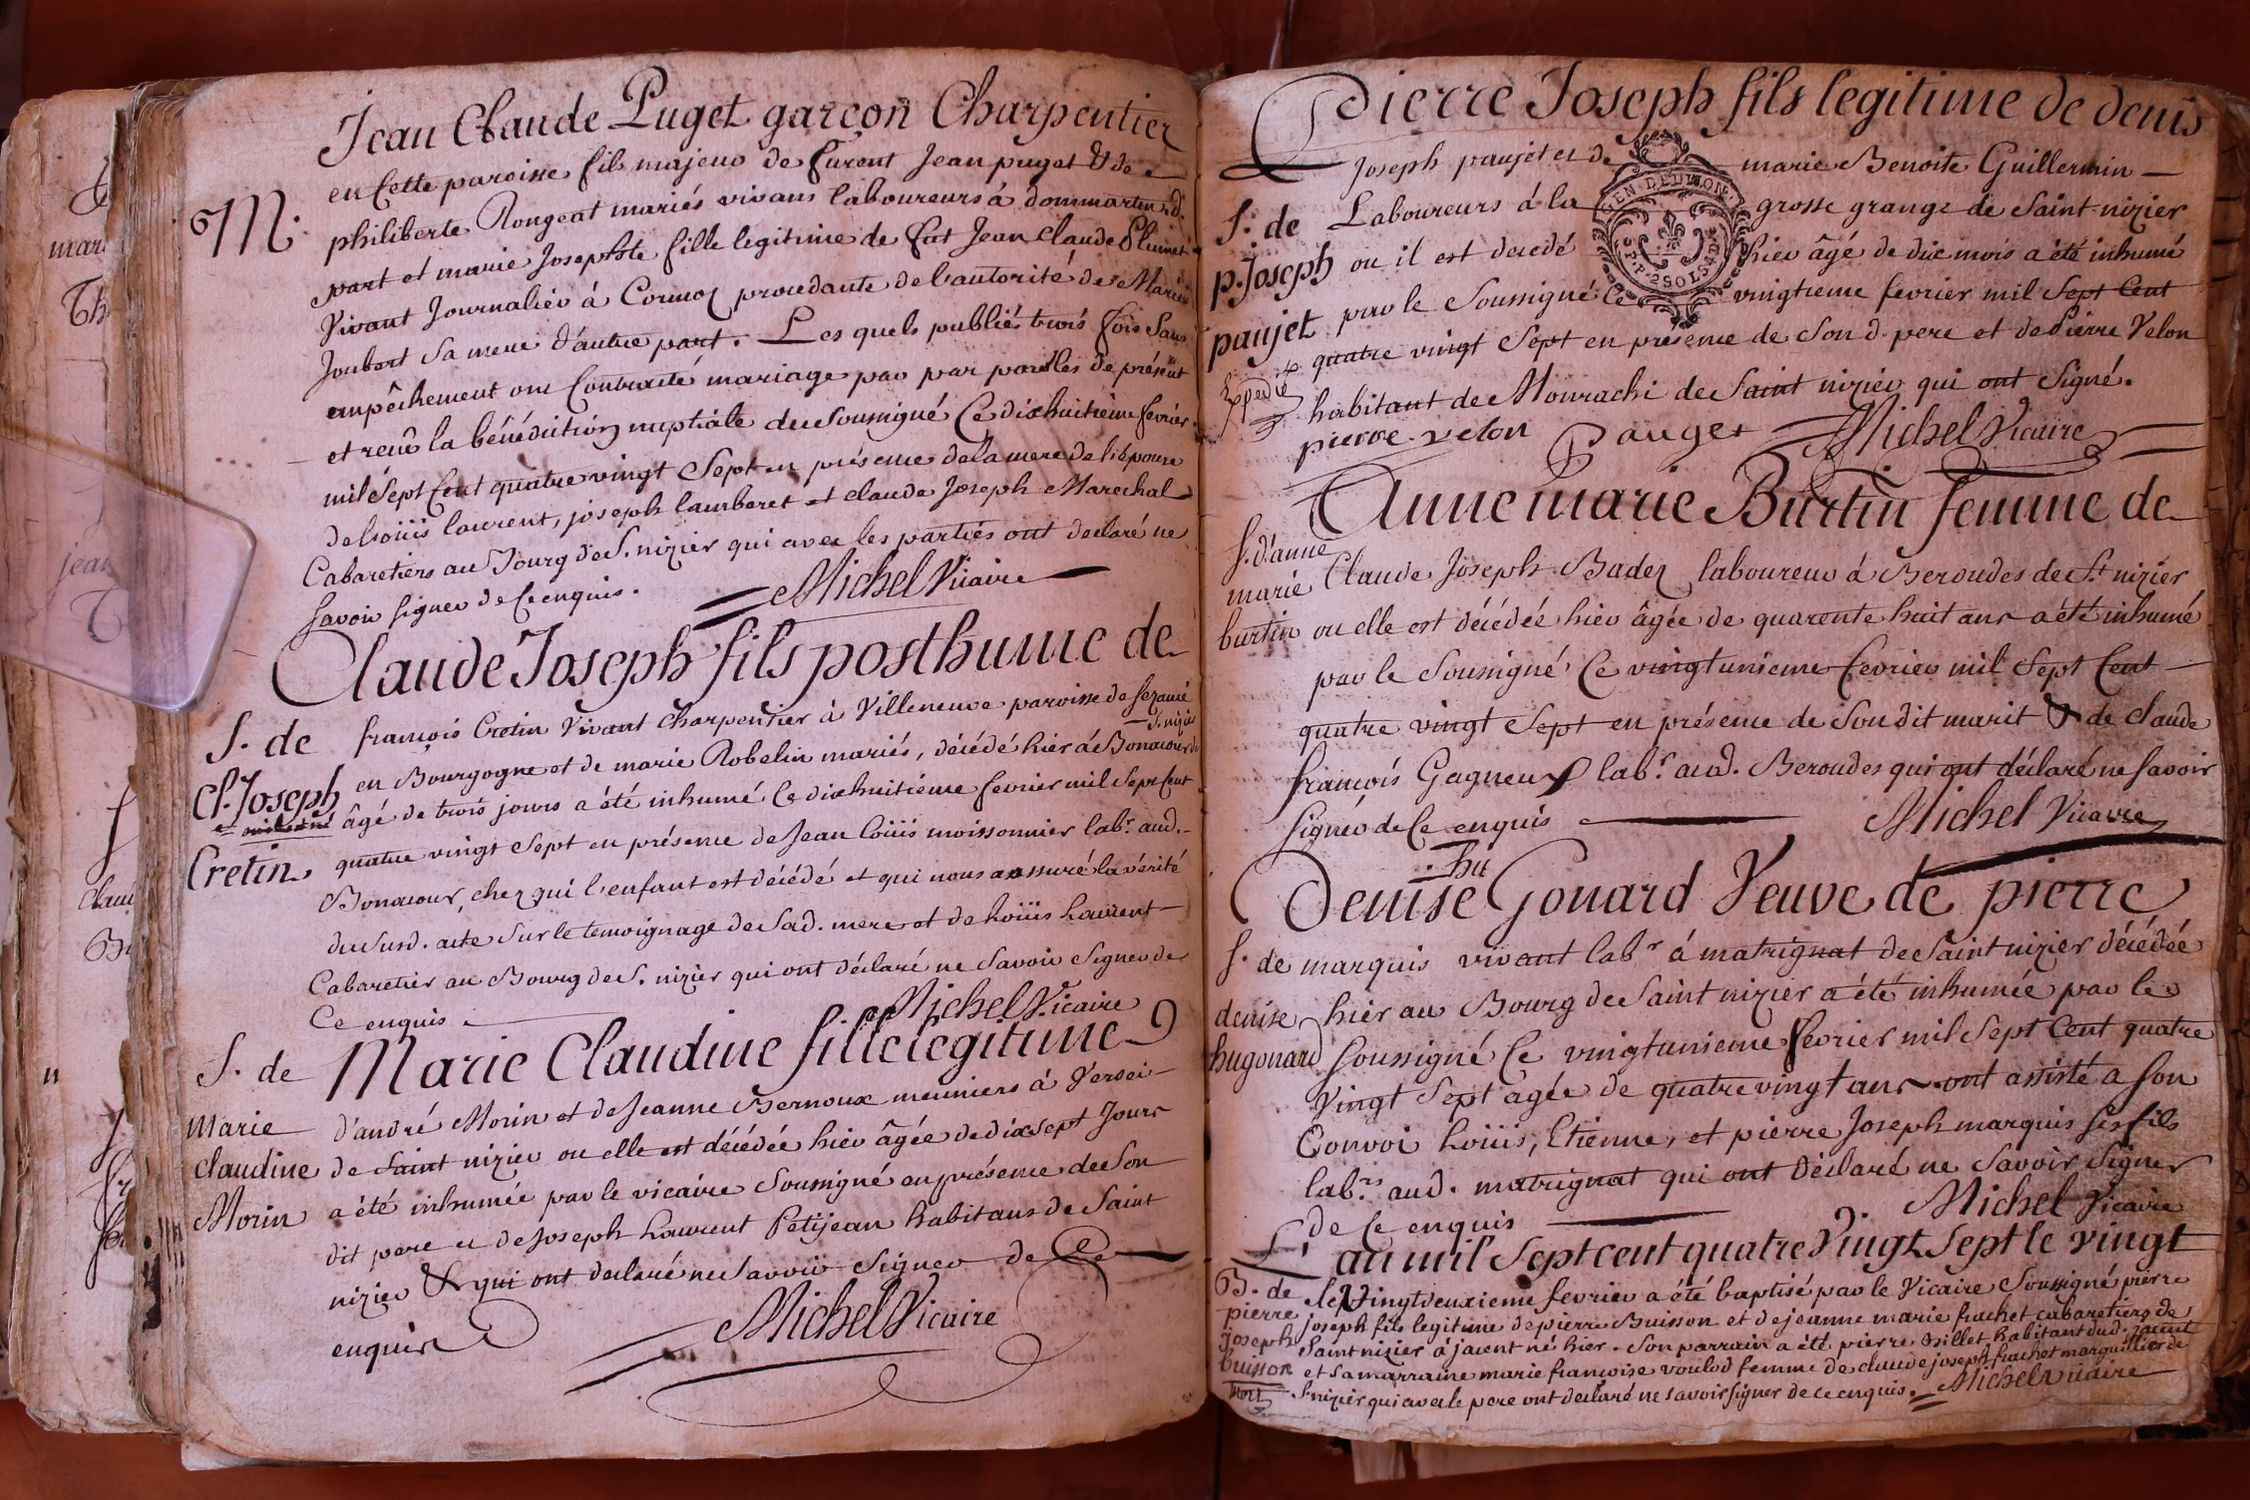 Jean Claude Puget garçon Charpentier
M. en Cette paroisse, fils majeur de furent Jean puget & de
philiberte Rongeat mariés vivans laboureurs à dommartin, d.
part et marie Josephte fille legitime de fut Jean Claude
Vivant Journalier à Cormoz procedante de l'autorité de Marie
Joubert sa mere d'autre part. Les quels publiés trois fois Sans
empêchement ont Contracté mariage par par paroles de présent
et reçû la bénédiction nuptiale du Soussigné Ce dixhuitieme fevrier
mil Sept Cent quatre vingt Sept en présence de la mere de l'épouse
de Loüis laurent, joseph lamberet et claude Joseph Marechal
Cabaretiers au Bourg de S. nizier qui avec les parties ont declaré ne
Savoir signer de Ce enquis. Michel Vicaire
Claude Joseph fils posthume de
S. de françois Cretin Vivant Charpentier à Villeneuve paroisse de
S. nizier
Cl. Joseph en Bourgogne et de marie Robelin mariés, décédé hier à Bonacour de
âgé de trois jours a été inhumé Ce dixhuitieme fevrier mil Sept Cent
Cretin quatre vingt Sept en présence de Jean loüis moissonnier labr. aud.
Bonacour, chez qui l'enfant est décédé et qui nous a assuré la vérité
du Susd. acte Sur le temoignage de Sad. mere et de Loüis Laurent
Cabaretier au Bourg de S. nizier qui ont déclaré ne Savoir Signer de
Ce enquis. Michel Vicaire
S. de Marie Claudine fille legitime
marie d'andré Morin et de Jeanne Bernoux meuniers à
claudine de Saint nizier ou elle est décédée hier âgée de dixsept Jours
Morin a été inhumée par le vicaire Soussigné en présence de Son
dit pere et de Joseph Laurent Petijean habitans de Saint
nizier & qui ont declaré ne Savoir Signer de Ce
enquis Michel Vicaire
Pierre Joseph fils legitime de denis
GEN. DE DIJON
2 SOLS 4 D
Joseph paujet et de marie Benoite Guillermin
S. de Laboureurs à la grosse grange de Saint nizier
p. Joseph ou il est decedé hier âgé de dix mois a été inhumé
paujet par le Soussigné Ce vingtieme fevrier mil Sept Cent
quatre vingt Sept en présence de Son d. pere et de Pierre Velon
Expedié habitant de Mourachi de Saint nizier qui ont Signé.
pierre velon Pauget Michel Vicaire
Anne marie Burtin femme de
S. d'anne marie Claude Joseph Badez laboureur à Beroudes de St. nizier
burtin ou elle est décédée hier âgée de quarente huit ans a été inhumé
par le Soussigné Ce vingtunieme fevrier mil Sept Cent
quatre vingt Sept en présence de Son dit marit & de Claude
françois Gagneux labr. aud. Beroudes qui ont déclaré ne Savoir
Signer de Ce enquis Michel Vicaire
hu
Denise Gonard Veuve de pierre
S. de marquis vivant labr à matrignat de Saint nizier décédée
denise hier au Bourg de Saint nizier a été inhumée par le
hugonard Soussigné Ce vingtunieme fevrier mil Sept Cent quatre
Vingt Sept agée de quatre vingt ans ont assisté a Son
Convoi Loüis, Etienne, et pierre Joseph marquis ses fils
labrs. aud. matrignat qui ont Déclaré ne Savoir Signer
de Ce enquis Michel Vicaire
L'an mil Sept cent quatre Vingt Sept le vingt
B. de le Vingtdeuxieme fevrier a été baptisé par le Vicaire Soussigné pierre
pierre joseph fils legitime de pierre Buisson et de jeanne marie frachet cabaretiers de
joseph Saint nizier à jacent né hier. Son parrain a été pierre Billet habitant dud. jacent
buisson et Sa marraine marie françoise femme de claude joseph frachet marguillier de
mort S. nizier qui avec le pere ont declaré ne Savoir Signer de ce enquis. Michel vicaire